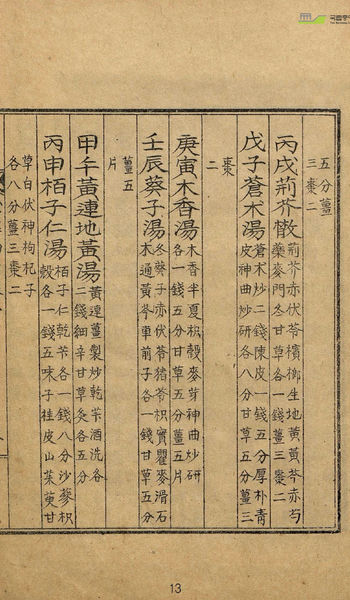 五分薑
三棗二
丙戌荊芥散
荊芥赤伏苓檳榔生地黃黃芩赤芍
藥麥門冬甘草各一錢薑三棗二
戊子蒼朮湯
蒼朮炒二錢陳皮一錢五分厚朴青
皮神曲炒研各八分甘草五分薑三
棗
二
庚寅木香湯
木香半夏枳殼麥芽神曲炒研
各一錢五分甘草五分薑五片
壬辰葵子湯
冬葵子赤伏苓猪苓枳實瞿麥滑石
木通黃芩車前子各一錢甘草五分
薑五
片
甲午黃連地黃湯
黃連薑製炒乾芐酒洗各
二錢細辛甘草灸各五分
丙申栢子仁湯
栢子仁乾芐各一錢八分沙蔘枳
殼各一錢五味子桂皮山茱萸甘
草白伏神枸杞子
各八分薑三棗二
13